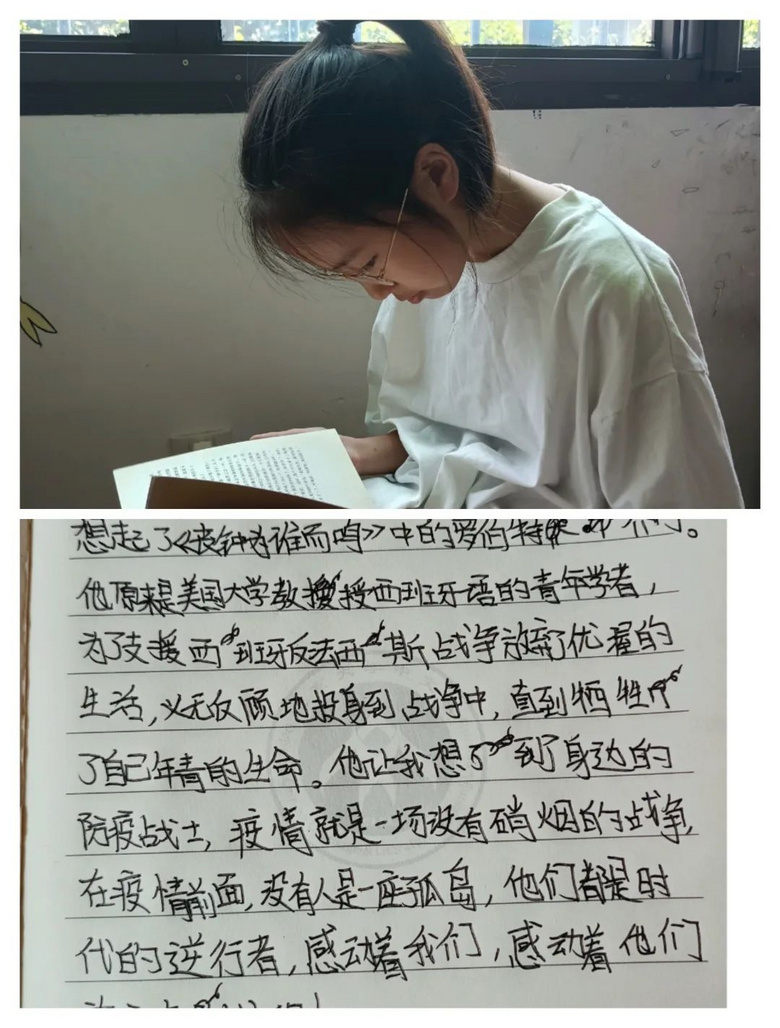 想起了《丧钟为谁而鸣》中的罗伯特
他原来是美国大学教授西班牙语的青年学者，
为了支援西班牙反法西斯战争放弃了优渥的
生活，义无反顾地投身到战争中，直到牺牲
了自己年青的生命。他让我想到了身边的
防疫战士，疫情就是一场没有硝烟的战争，
在疫情前面，没有人是一座孤岛，他们都是时
代的逆行者，感动着我们，感动着他们